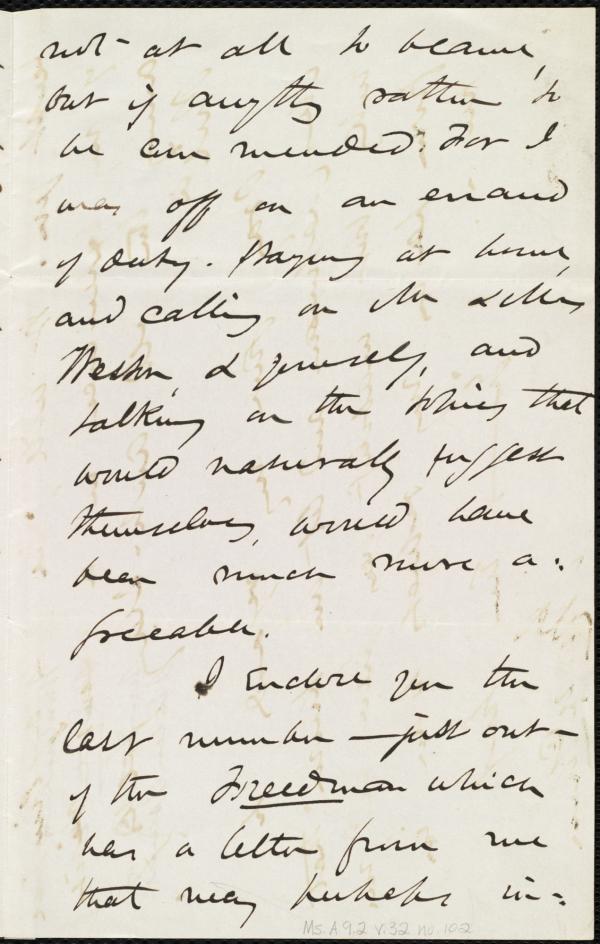 not at all to blame,
but if anything rather to
be commended. For I
was off on an errand
of duty. Staying at home,
and calling on Mr & Miss
Weston, & yourself, and
talking on the topics that
would naturally suggest
themselves, would have
been much more a:
greeable.
I enclose you the
last number — just out —
of the Freedman which
has a letter from me
that may perhaps in=
Ms. A.9.2 v.32 no. 102